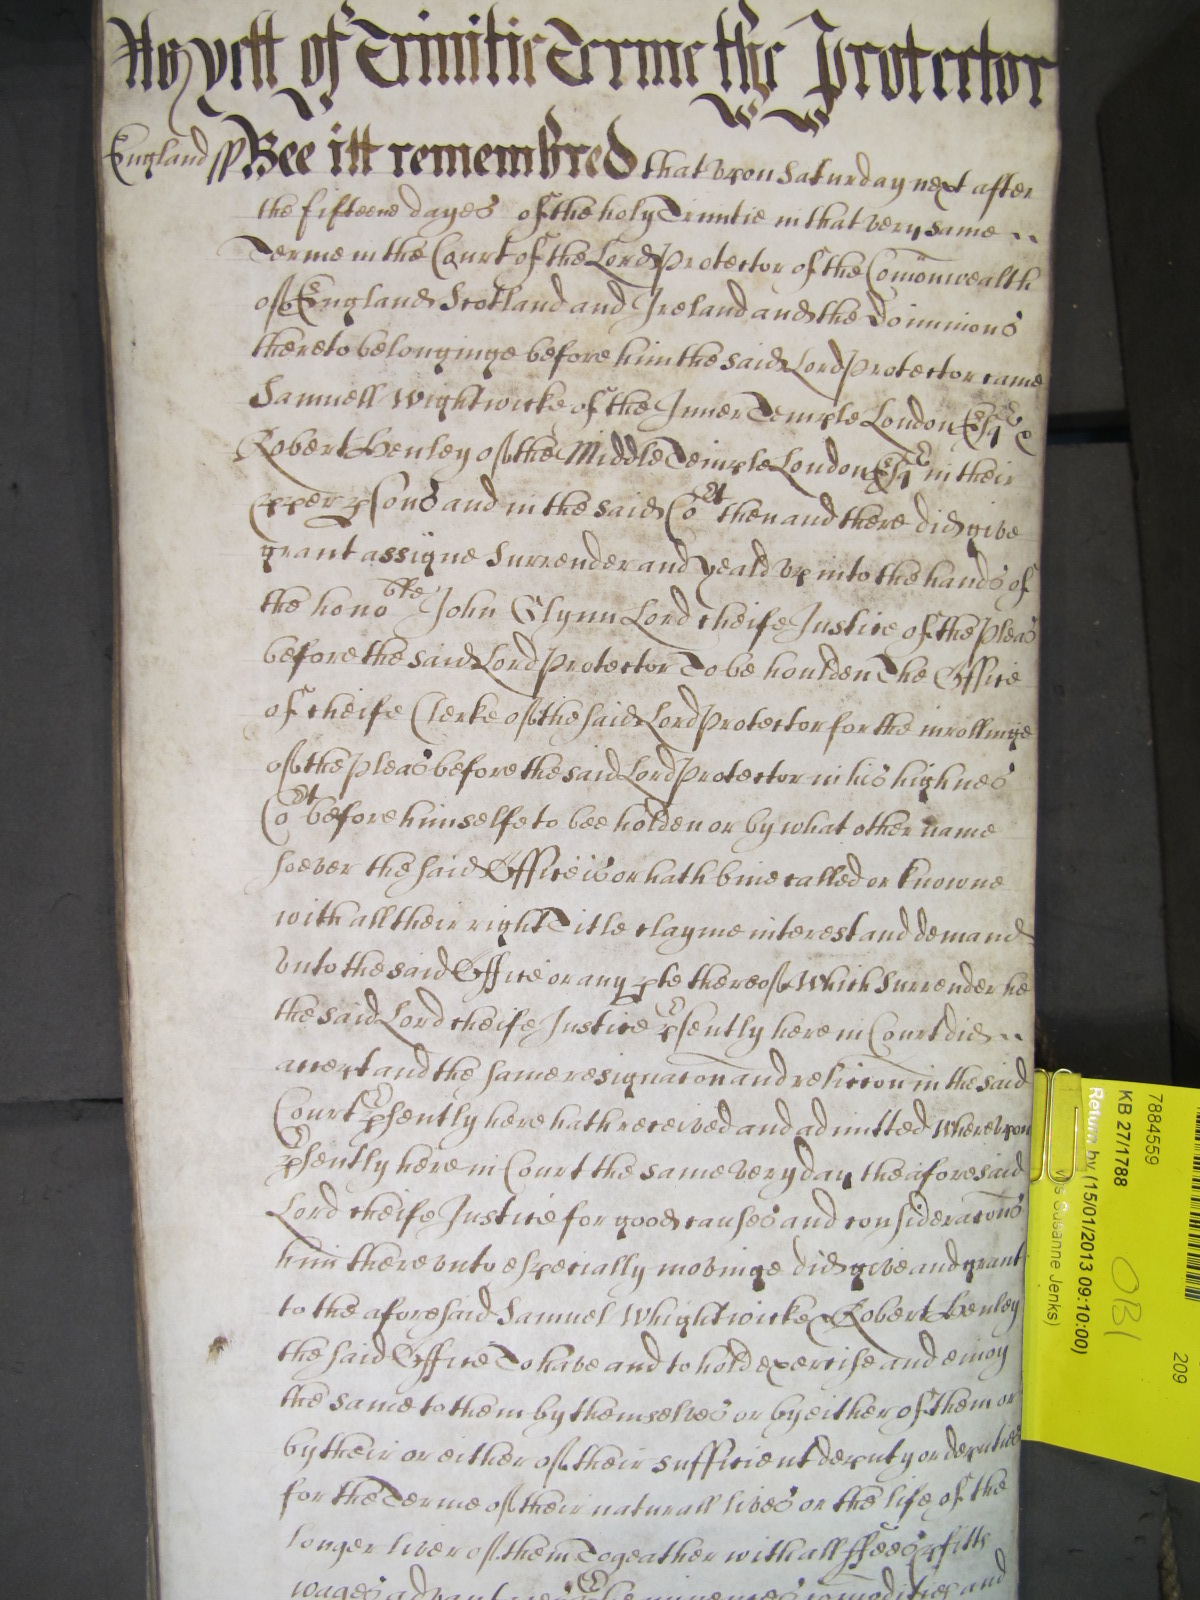 As yett of Trinitie Terme the Protector
England ss Bee itt remembred that upon Saturday next after
the fifteene dayes of the holy Trinitie in that very same
Terme in the Court of the Lord Protector of the Comonwealth
of England Scotland and Ireland and the Dominions
thereto belonginge before him the said Lord Protector came
Samuell Wightwicke of the Inner Temple London Esqr &
Robert Henley of the Middle Temple London Esqr in their
pper psons and in the said Cort then and there did give
grant assigne Surrender and yeald up into the hands of
the honoble John Glynn Lord cheife Justice of the Pleas
before the said Lord Protector To be houlden The Office
of cheife Clerke of the said Lord Protector for the inrollinge
of the Pleas before the said Lord Protector in his highnes
Cort before himselfe to bee holden or by what other name
soever the said Office is or hath bine called or knowne
with all their right Title clayme interest and demand
unto the said Office or any pte thereof Which Surrender he
the said Lord cheife Justice psently here in Court did
accept and the same resignacon and reliccon in the said
Court psently here hath received and admitted Whereupon
psently here in Court the same very day the aforesaid
Lord cheife Justice for good causes and consideracons
him thereunto especially movinge did give and grant
to the aforesaid Samuel Whightwicke & Robert Henley
the said Office To have and to hold exercise and enioy
the same to them by themselves or by either of them or
by their or either of their sufficient deputy or deputies
for the Terme of their naturall lives or the life of the
longer liver of them Togeather with all ffees pfitts
wages comodities and
7884559
KB 27/1788
Return by (15/01/2013 09:10:00)
Susanne Jenks)
OB1
209